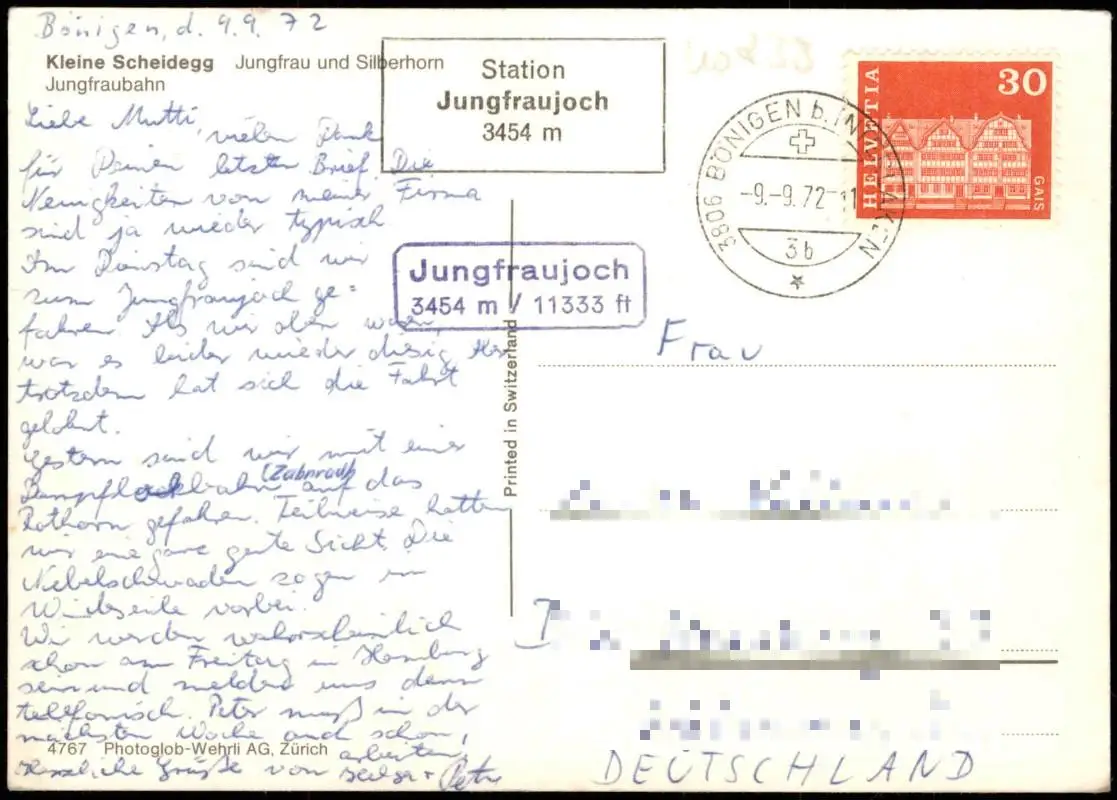 Bönigen, d. 9.9.72
Kleine Scheidegg Jungfrau und Silberhorn
Jungfraubahn
Station
Jungfraujoch
3454 m
HELVETIA
30
GAIS
3806 BÖNIGEN b. INTERLAKEN
-9.-9.72-11
3b
Jungfraujoch
3454 m / 11333 ft
Liebe Mutti,
vielen Dank
für Deinen letzten Brief. Die
Neuigkeiten von meiner Firma
sind ja wieder typisch
Am Dienstag sind wir
zum Jungfraujoch ge=
fahren. Als wir oben waren,
war es leider wieder diesig. Aber
trotzdem hat sich die Fahrt
gelohnt.
Gestern sind wir mit einer
(Zahnrad)
Dampflockbahn auf das
Rothorn gefahren. Teilweise hatten
wir eine ganz gute Sicht. Die
Nebelschwaden zogen in
Windseile vorbei.
Wir werden wahrscheinlich
schon am Freitag in Hamburg
sein und melden uns dann
telefonisch. Peter muß in der
nächsten Woche auch schon
arbeiten
Herzliche Grüße von + Peter
4767 Photoglob-Wehrli AG, Zürich
Printed in Switzerland
Frau
D
DEUTSCHLAND